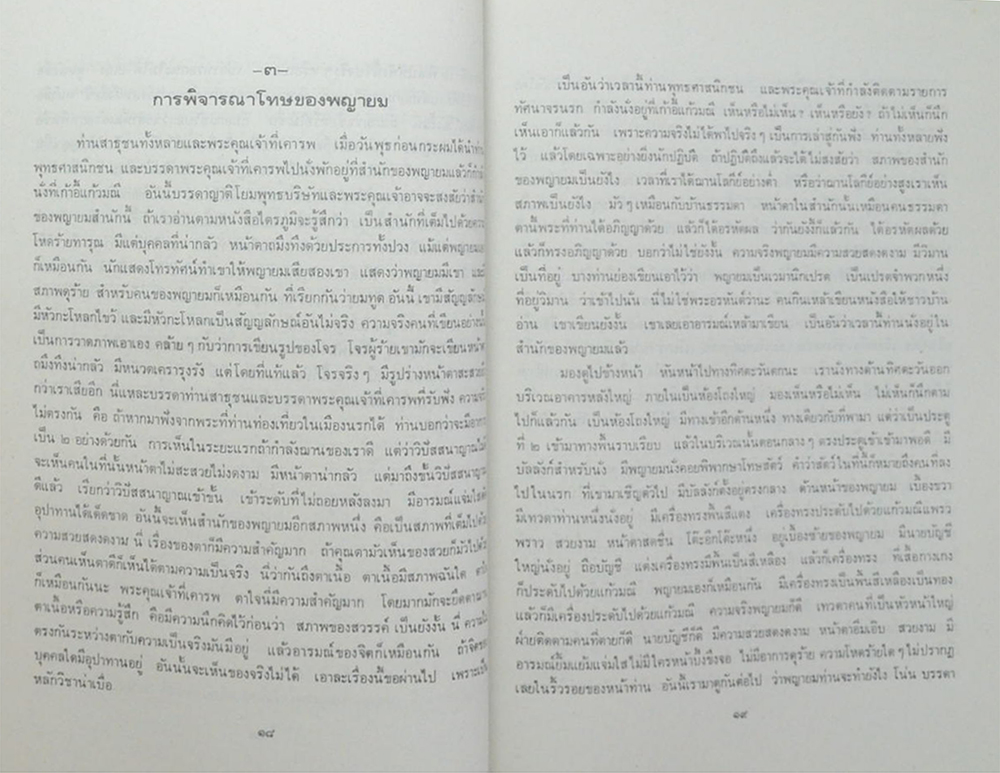 -๓-
การพิจารณาโทษของพญายม
ท่านสาธุชนทั้งหลายและพระคุณเจ้าที่เคารพ เมื่อวันพุธก่อนกระผมได้นำท่าน
พุทธศาสนิกชน และบรรดาพระคุณเจ้าที่เคารพไปนั่งพักอยู่ที่สำนักของพญายมแล้วก็กำลัง
นั่งที่เก้าอี้แก้วมณี อันนี้บรรดาญาติโยมพุทธบริษัทและพระคุณเจ้าอาจจะสงสัยว่าสำนัก
ของพญายมสำนักนี้ ถ้าเราอ่านตามหนังสือไตรภูมิจะรู้สึกว่า เป็นสำนักที่เต็มไปด้วยความ
โหดร้ายทารุณ มีแต่บุคคลที่น่ากลัว หน้าตาถมึงทึงด้วยประการทั้งปวง แม้แต่พญายม
ก็เหมือนกัน นักแสดงโทรทัศน์ทำเขาให้พญายมเสียสองเขา แสดงว่าพญายมมีเขา และ
สภาพดุร้าย สำหรับคนของพญายมก็เหมือนกัน ที่เรียกกันว่ายมทูต อันนี้ เขามีสัญลักษณ์
มีหัวกะโหลกไขว้ และมีหัวกะโหลกเป็นสัญญลักษณ์อันไม่จริง ความจริงคนที่เขียนอย่างนี้
เป็นการวาดภาพเอาเอง คล้ายๆ กับว่าการเขียนรูปของโจร โจรผู้ร้ายเขามักจะเขียนหน้า
ถมึงทึงน่ากลัว มีหนวดเครารุงรัง แต่โดยที่แท้แล้ว โจรจริงๆ มีรูปร่างหน้าตาสะสวย
กว่าเราเสียอีก นี่แหละบรรดาท่านสาธุชนและบรรดาพระคุณเจ้าที่เคารพที่รับฟัง ความจริง
ไม่ตรงกัน คือ ถ้าหากมาฟังจากพระที่ท่านท่องเที่ยวในเมืองนรกได้ ท่านบอกว่าจะมี
เป็น ๒ อย่างด้วยกัน การเห็นในระยะแรกถ้ากำลังฌานของเราดี แต่ว่าวิปัสสนาญาณไม่ดี
จะเห็นคนในที่นั้นหน้าตาไม่สะสวยไม่งดงาม มีหน้าตาน่ากลัว แต่มาถึงชั้นวิปัสสนาญาณ
ดีแล้ว เรียกว่าวิปัสสนาญาณเข้าขั้น เข้าระดับที่ไม่ถอยหลังลงมา มีอารมณ์แจ่มใส
อุปาทานได้เด็ดขาด อันนี้จะเห็นสำนักของพญายมอีกสภาพหนึ่ง คือเป็นสภาพที่เต็มไปด้วย
ความสวยสดงดงาม นี่ เรื่องของตาก็มีความสำคัญมาก ถ้าคุณตามัวเห็นของสวยก็มัวไปด้วย
ส่วนคนเห็นตาดีก็เห็นได้ตามความเป็นจริง นี่ว่ากันถึงตาเนื้อ ตาเนื้อมีสภาพฉันใด ตาใจ
ก็เหมือนกันนะ พระคุณเจ้าที่เคารพ ตาใจนี่มีความสำคัญมาก โดยมากมักจะยึดตาม
ตาเนื้อหรือความรู้สึก คือมีความนึกคิดไว้ก่อนว่า สภาพของสวรรค์ เป็นยังงั้น นี่ ความไม่
ตรงกันระหว่างตากับความเป็นจริงมันมีอยู่ แล้วอารมณ์ของจิตก็เหมือนกัน ถ้าจิตของ
บุคคลใดมีอุปาทานอยู่ อันนั้นจะเห็นของจริงไม่ได้ เอาละเรื่องนี้ขอผ่านไป เพราะเป็น
หลักวิชาน่าเบื่อ
๑๘
เป็นอันว่าเวลานี้ท่านพุทธศาสนิกชน และพระคุณเจ้าที่กำลังติดตามรายการ
ทัศนาจรนรก กำลังนั่งอยู่ที่เก้าอี้แก้วมณี เห็นหรือไม่เห็น? เห็นหรือยัง? ถ้าไม่เห็นก็นึก
เห็นเอาก็แล้วกัน เพราะความจริงไม่ได้พาไปจริงๆ เป็นการเล่าสู่กันฟัง ท่านทั้งหลายฟัง
ไว้ แล้วโดยเฉพาะอย่างยิ่งนักปฏิบัติ ถ้าปฏิบัติถึงแล้วจะได้ไม่สงสัยว่า สภาพของสำนัก
ของพญายมเป็นยังไง เวลาที่เราได้ฌานโลกีย์อย่างต่ำ หรือว่าฌานโลกีย์อย่างสูงเราเห็น
สภาพเป็นยังไง มัวๆ เหมือนกับบ้านธรรมดา หน้าตาในสำนักนั้นเหมือนคนธรรมดา
ตานี้พระที่ท่านได้อภิญญาด้วย แล้วก็ได้อรหัตผล ว่ากันยังงี้ก็แล้วกัน ได้อรหัตผลด้วย
แล้วก็ทรงอภิญญาด้วย บอกว่าไม่ใช่ยังงั้น ความจริงพญายมมีความสวยสดงดงาม มีวิมาน
เป็นที่อยู่ บางท่านย่องเขียนเอาไว้ว่า พญายมเป็นเวมานิกเปรต เป็นเปรตจำพวกหนึ่ง
ที่อยู่วิมาน ว่าเข้าไปนั่น นี่ไม่ใช่พระอรหันต์ว่านะ คนกินเหล้าเขียนหนังสือให้ชาวบ้าน
อ่าน เขาเขียนยังงั้น เขาเลยเอาอารมณ์เหล้ามาเขียน เป็นอันว่าเวลานี้ท่านนั่งอยู่ใน
สำนักของพญายมแล้ว
มองดูไปข้างหน้า หันหน้าไปทางทิศตะวันตกนะ เรานั่งทางด้านทิศตะวันออก
บริเวณอาคารหลังใหญ่ ภายในเป็นห้องโถงใหญ่ มองเห็นหรือไม่เห็น ไม่เห็นก็นึกตาม
ไปก็แล้วกัน เป็นห้องโถงใหญ่ มีทางเข้าอีกด้านหนึ่ง ทางเดียวกับที่พามา แต่ว่าเป็นประตู
ที่ ๒ เข้ามาทางพื้นราบเรียบ แล้วในบริเวณนั้นตอนกลางๆ ตรงประตูเข้าเข้ามาพอดี มี
บัลลังก์สำหรับนั่ง มีพญายมนั่งคอยพิพากษาโทษสัตว์ คำว่าสัตว์ในที่นี้ก็หมายถึงคนที่ลง
ไปในนรก ที่เขามาเชิญตัวไป มีบัลลังก์ตั้งอยู่ตรงกลาง ด้านหน้าของพญายม เบื้องขวา
มีเทวดาท่านหนึ่งนั่งอยู่ มีเครื่องทรงพื้นสีแดง เครื่องทรงประดับไปด้วยแก้วมณีแพรว
พราว สวยงาม หน้าตาสดชื่น โต๊ะอีกโต๊ะหนึ่ง อยู่เบื้องซ้ายของพญายม มีนายบัญชี
ใหญ่นั่งอยู่ ถือบัญชี แต่งเครื่องทรงมีพื้นเป็นสีเหลือง แล้วก็เครื่องทรง ที่เสื้อกางเกง
ก็ประดับไปด้วยแก้วมณี พญายมเองก็เหมือนกัน มีเครื่องทรงเป็นพื้นสีเหลืองเป็นทอง
แล้วก็มีเครื่องประดับไปด้วยแก้วมณี ความจริงพญายมก็ดี เทวดาคนที่เป็นหัวหน้าใหญ่
ฝ่ายติดตามคนที่ตายก็ดี นายบัญชีก็ดี มีความสวยสดงดงาม หน้าตาอิ่มเอิบ สวยงาม มี
อารมณ์ยิ้มแย้มแจ่มใสไม่มีใครหน้าบึ้งขึงจอ ไม่มีอาการดุร้าย ความโหดร้ายใดๆ ไม่ปรากฏ
เลยในริ้วรอยของหน้าท่าน อันนี้เรามาดูกันต่อไป ว่าพญายมท่านจะทำยังไง โน่น บรรดา
๑๙